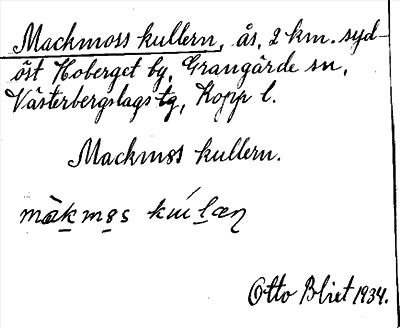 Mackmoss kullern, ås, 2 km. syd-
öst Hoberget by, Grangärde sn,
Västerbergslags tg, Kopp l.
Mackmøs kullern.
Otto Blixt 1934.